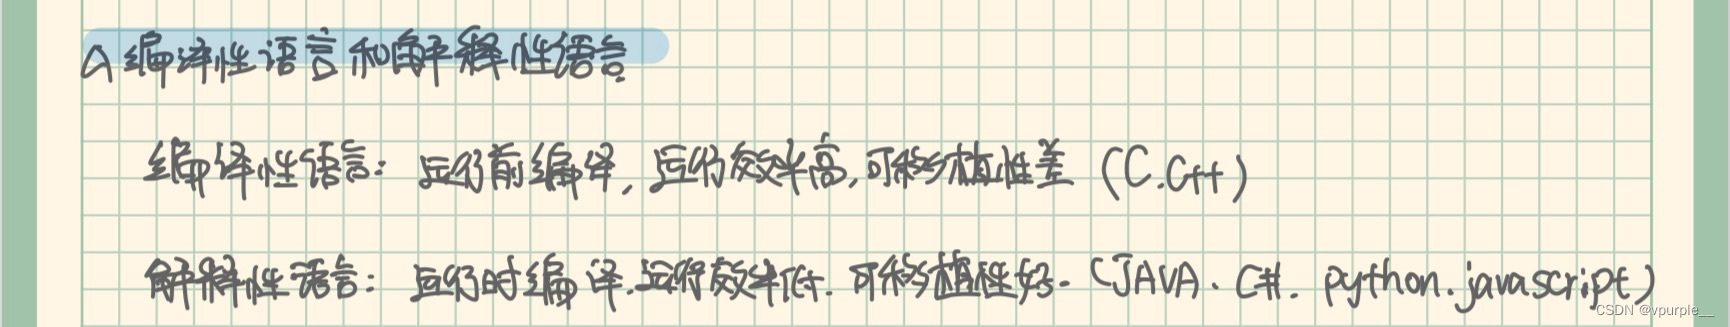 △编译性语言和解释性语言
编译性语言：运行前编译，运行效率高，可移植性差（C.C++）
解释性语言：运行时编译.运行效率低.可移植性好.（JAVA.C#.python.javascript）
CSDN @vpurple__